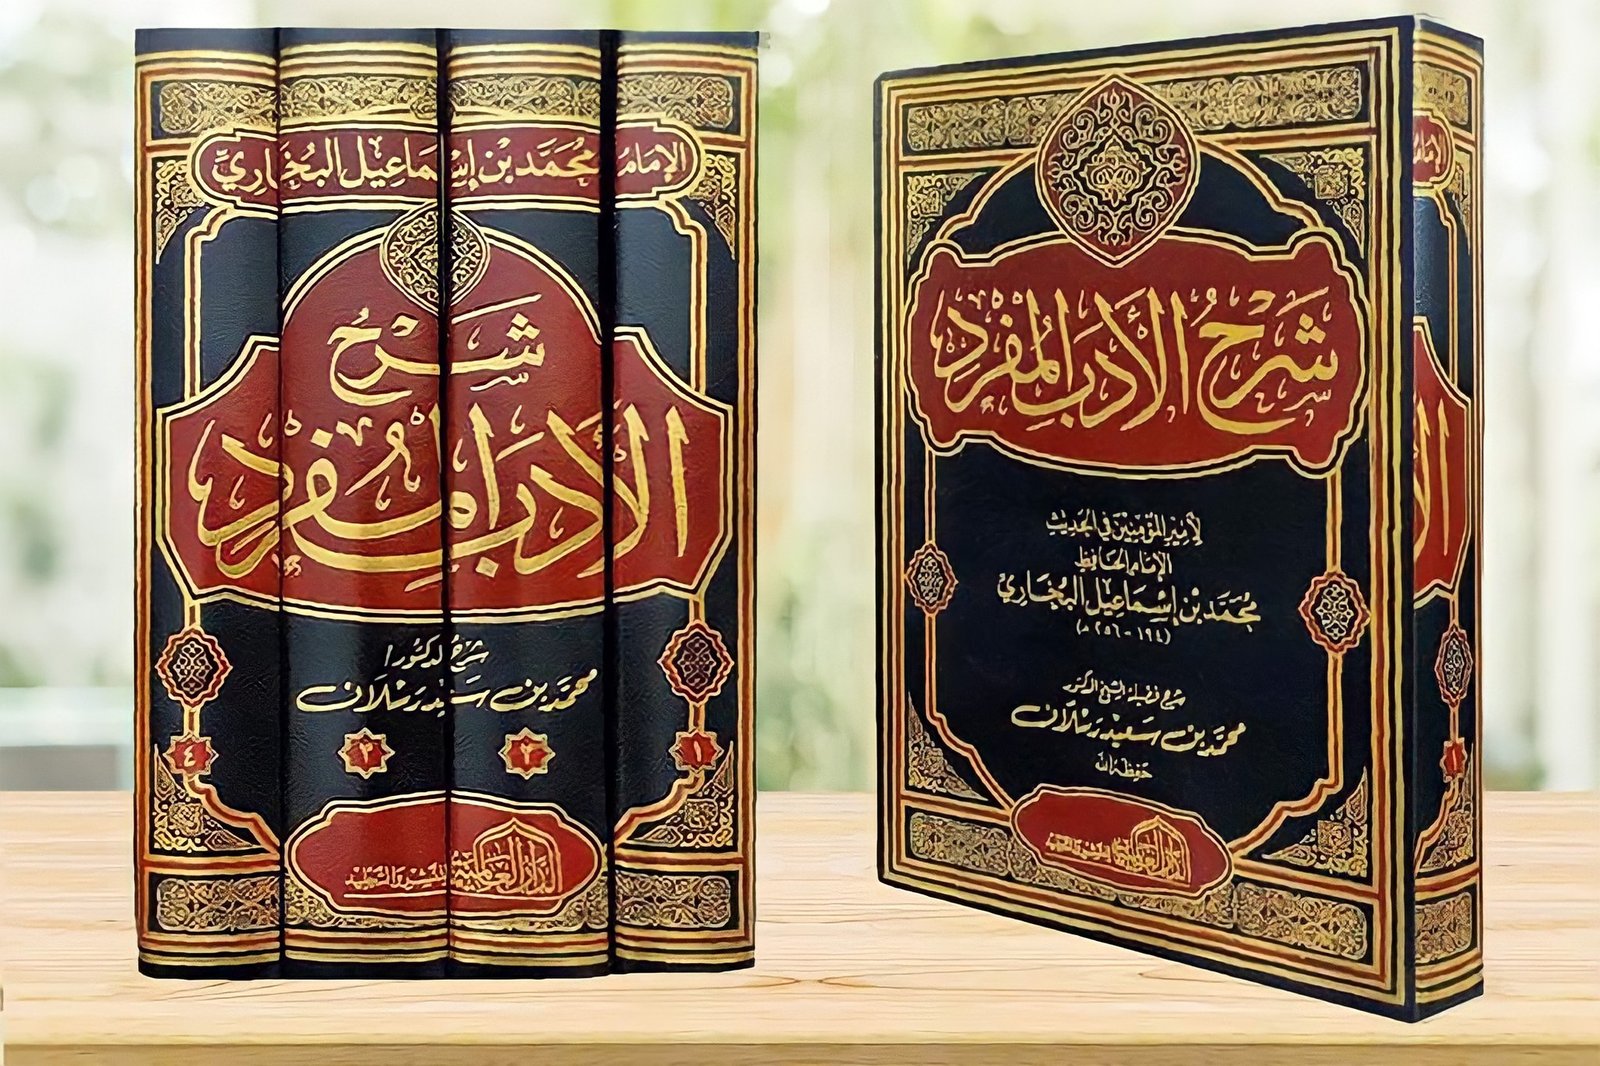 الإمام محمد بن إسماعيل البخاري
شرح
الأدب المفرد
شرح الدكتور
محمد بن سعيد رسلان
١
٢
٣
٤
الدار العالمية للنشر والتجليد
شَرْحُ الأَدَبِ المُفْرَدِ
لأمير المؤمنين في الحديث
الإمام الحافظ
محمد بن إسماعيل البخاري
(١٩٤ - ٢٥٦ هـ)
شرح فضيلة الشيخ الدكتور
محمد بن سعيد رسلان
حفظه الله
الدار العالمية
١